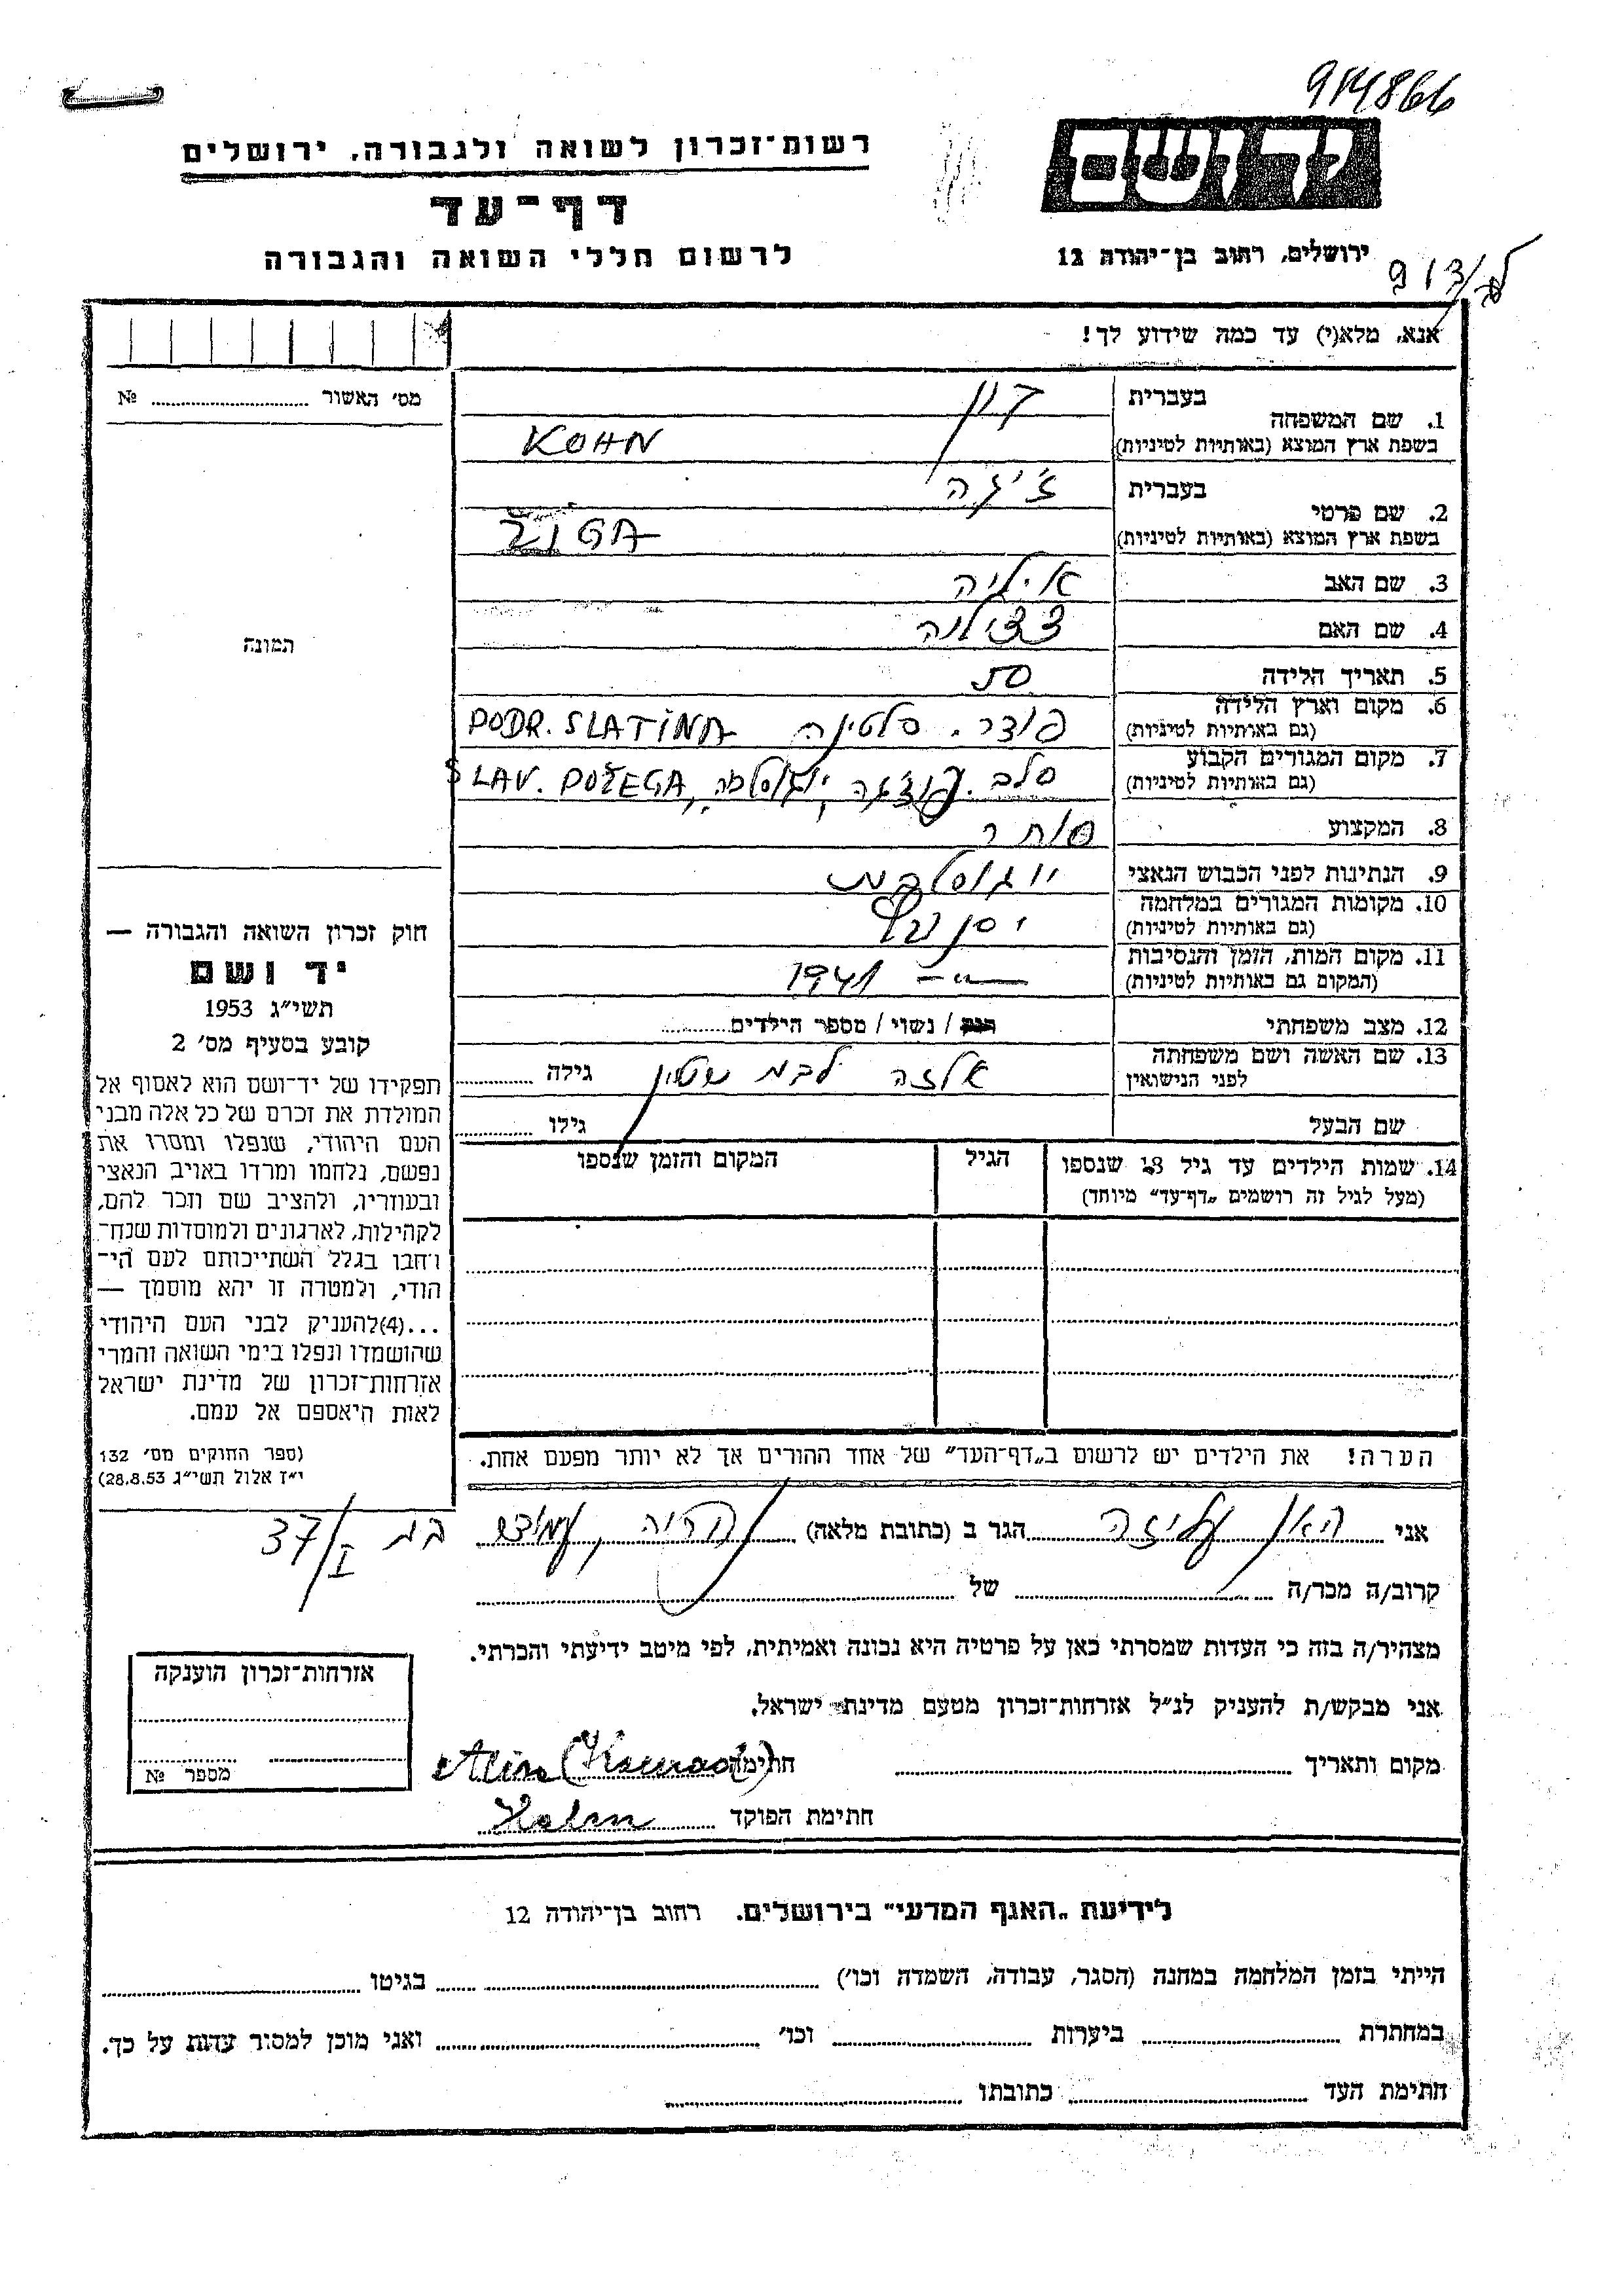 914866
רשות־זכרון לשואה ולגבורה, ירושלים
דף־עד
לרשום חללי השואה והגבורה
יד ושם
ירושלים, רחוב בן־יהודה 12
אנא, מלא(י) עד כמה שידוע לך!
מס׳ האשור № 
1. שם המשפחה
בעברית קון
בשפת ארץ המוצא (באותיות לטיניות) KOHN
2. שם פרטי
בעברית ז׳יגה
בשפת ארץ המוצא (באותיות לטיניות) ŽIGA
3. שם האב איליה
4. שם האם צצילנה
5. תאריך הלידה 50
6. מקום וארץ הלידה
(גם באותיות לטיניות) פודר. סלטינה PODR. SLATINA
7. מקום המגורים הקבוע
(גם באותיות לטיניות) סלב. פוז׳גה, יוגוסלביה, SLAV. POŽEGA
8. המקצוע סוחר
9. הנתינות לפני הכבוש הנאצי יוגוסלבית
10. מקומות המגורים במלחמה
(גם באותיות לטיניות)
11. מקום המות, הזמן והנסיבות
(המקום גם באותיות לטיניות) —״— 1941
12. מצב משפחתי רווק / נשוי / מספר הילדים
13. שם האשה ושם משפחתה
לפני הנישואין אלזה לבית גילה
שם הבעל גילו
14. שמות הילדים עד גיל 18 שנספו
(מעל לגיל זה רושמים „דף־עד״ מיוחד)
הגיל
המקום והזמן שנספו
הערה! את הילדים יש לרשום ב„דף־העד״ של אחד ההורים אך לא יותר מפעם אחת.
תמונה
חוק זכרון השואה והגבורה —
יד ושם
תשי״ג 1953
קובע בסעיף מס׳ 2
תפקידו של יד־ושם הוא לאסוף אל
המולדת את זכרם של כל אלה מבני
העם היהודי, שנפלו ומסרו את
נפשם, נלחמו ומרדו באויב הנאצי
ובעוזריו, ולהציב שם וזכר להם,
לקהילות, לארגונים ולמוסדות שנח־
רחבו בגלל השתייכותם לעם הי־
הודי, ולמטרה זו יהא מוסמך —
...(4)להעניק לבני העם היהודי
שהושמדו ונפלו בימי השואה והמרי
אזרחות־זכרון של מדינת ישראל
לאות היאספם אל עמם.
(ספר החוקים מס׳ 132
י״ז אלול תשי״ג 28.8.53)
אני עליזה הגר ב (כתובת מלאה) 37/I
קרוב/ה מכר/ה של
מצהיר/ה בזה כי העדות שמסרתי כאן על פרטיה היא נכונה ואמיתית, לפי מיטב ידיעתי והכרתי.
אני מבקש/ת להעניק לנ״ל אזרחות־זכרון מטעם מדינת ישראל.
מקום ותאריך חתימה
חתימת הפוקד
אזרחות־זכרון הוענקה
מספר №
לידיעת „האגף המדעי״ בירושלים. רחוב בן־יהודה 12
הייתי בזמן המלחמה במחנה (הסגר, עבודה, השמדה וכו׳) בגיטו
במחתרת ביערות וכו׳ ואני מוכן למסור עדות על כך.
חתימת העד כתובתו